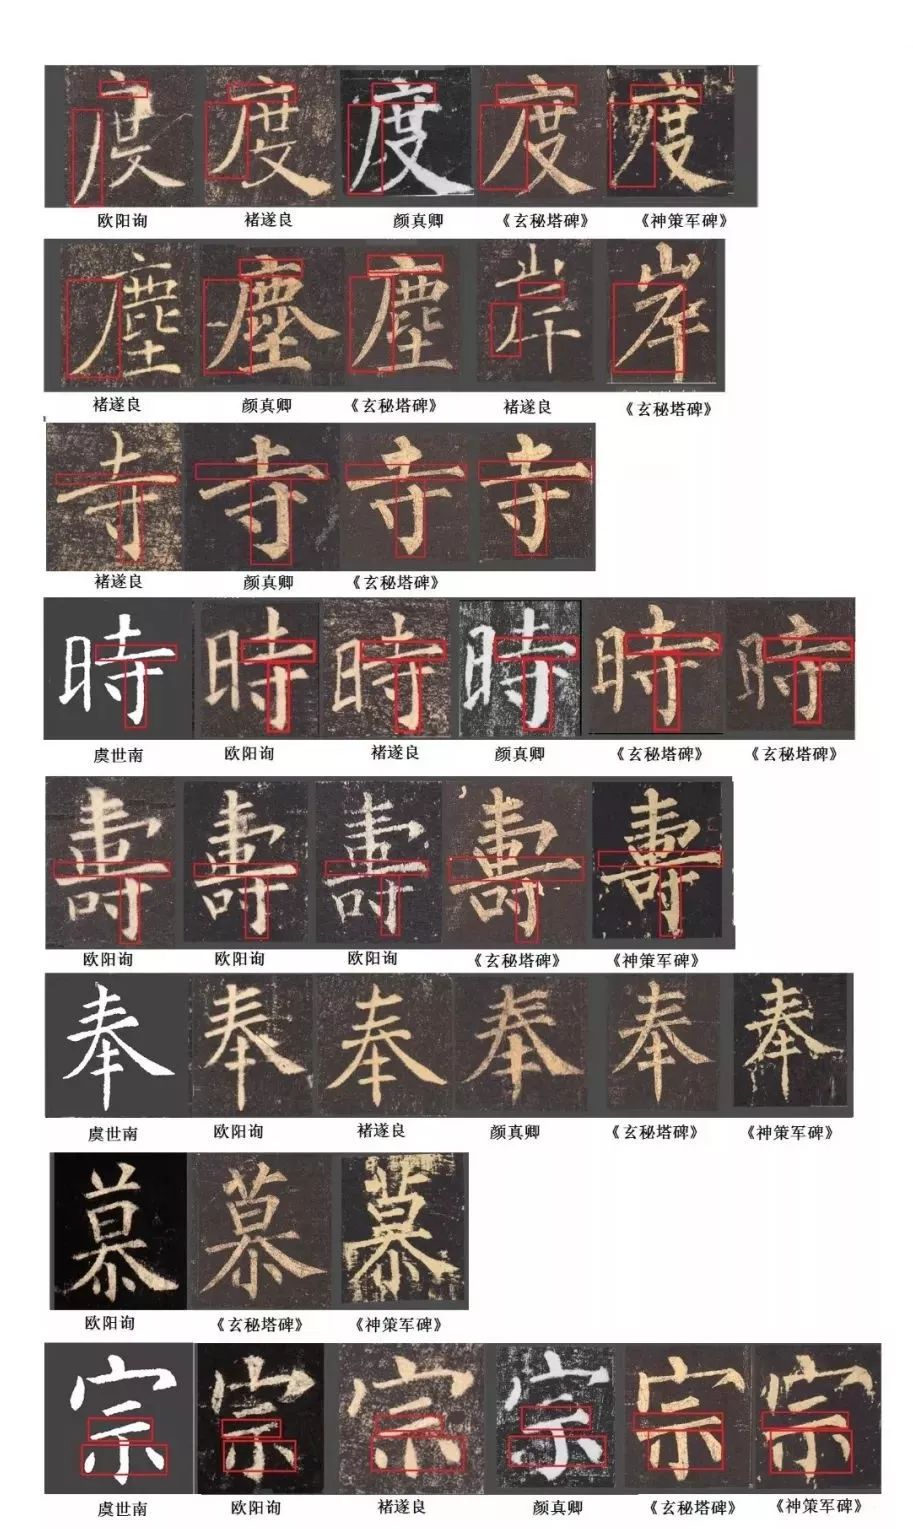 度 度 度 度 度
欧阳询 褚遂良 颜真卿 《玄秘塔碑》 《神策军碑》
塵 塵 塵 岸 岸
褚遂良 颜真卿 《玄秘塔碑》 褚遂良 《玄秘塔碑》
寺 寺 寺 寺
褚遂良 颜真卿 《玄秘塔碑》
時 時 時 時 時 時
虞世南 欧阳询 褚遂良 颜真卿 《玄秘塔碑》 《玄秘塔碑》
壽 壽 壽 壽 壽
欧阳询 欧阳询 欧阳询 《玄秘塔碑》 《神策军碑》
奉 奉 奉 奉 奉 奉
虞世南 欧阳询 褚遂良 颜真卿 《玄秘塔碑》 《神策军碑》
慕 慕 慕
欧阳询 《玄秘塔碑》 《神策军碑》
宗 宗 宗 宗 宗 宗
虞世南 欧阳询 褚遂良 颜真卿 《玄秘塔碑》 《神策军碑》